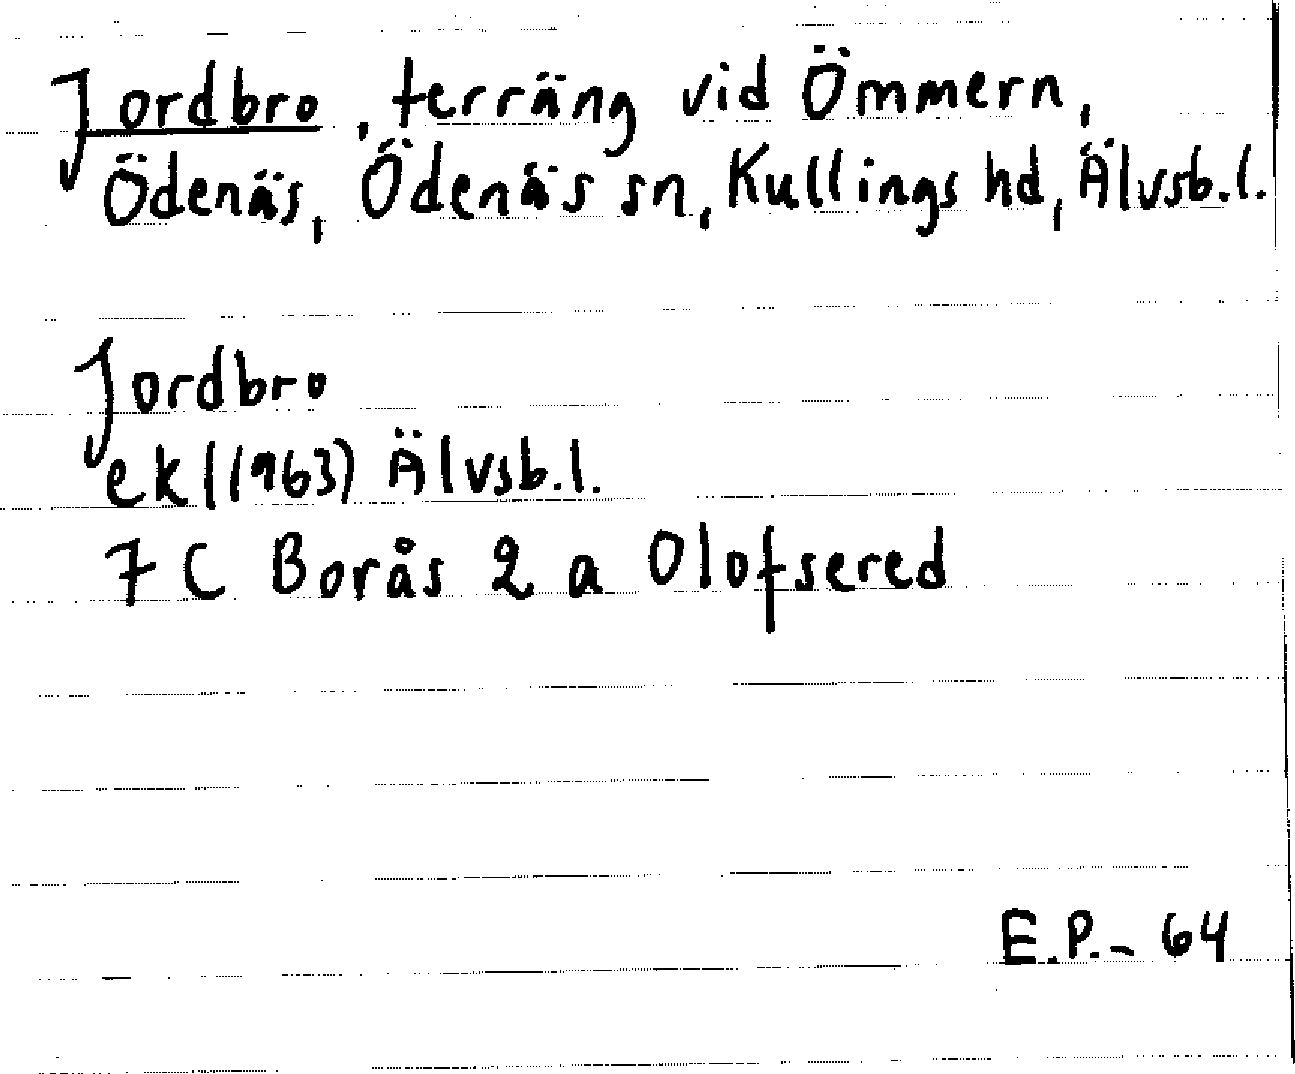 Jordbro, terräng vid Ömmern,
Ödenäs, Ödenäs sn, Kullings hd, Älvsb.l.
Jordbro
ek (1963) Älvsb.l.
7 C Borås 2 a Olofsered
E.P.- 64